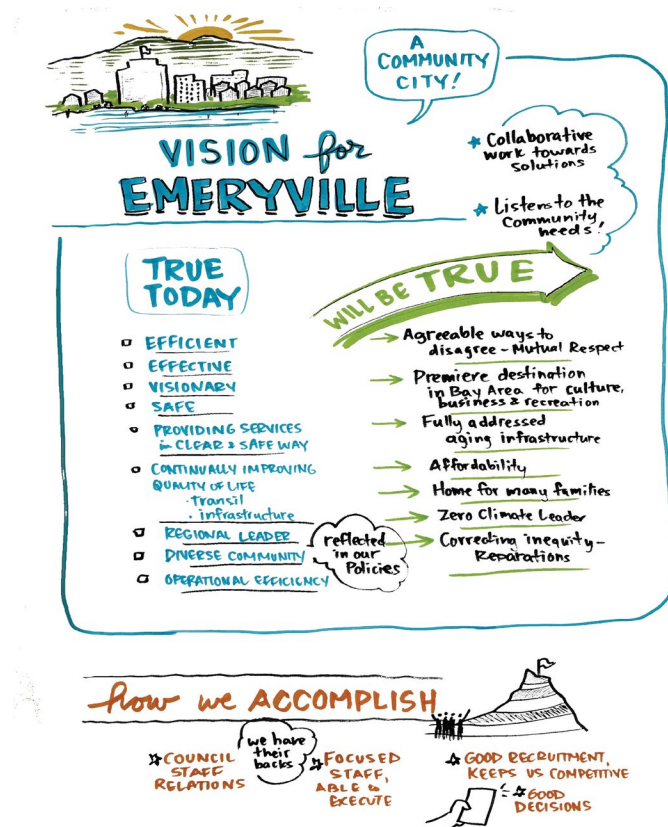 A
COMMUNITY
CITY!
VISION for
EMERYVILLE
Collaborative
work towards
solutions
Listens to the
Community
needs!
TRUE
TODAY
EFFICIENT
EFFECTIVE
VISIONARY
SAFE
PROVIDING SERVICES
in CLEAR & SAFE WAY
CONTINUALLY IMPROVING
QUALITY OF LIFE
· Transit
· infrastructure
REGIONAL LEADER
DIVERSE COMMUNITY
OPERATIONAL EFFICIENCY
reflected
in our
Policies
WILL BE TRUE
Agreeable ways to
disagree – Mutual Respect
Premiere destination
in Bay Area for culture,
business & recreation
Fully addressed
aging infrastructure
Affordability
Home for many families
Zero Climate Leader
Correcting inequity –
Reparations
how we ACCOMPLISH
COUNCIL
STAFF
RELATIONS
we have
their
backs
FOCUSED
STAFF,
ABLE to
EXECUTE
GOOD RECRUITMENT,
KEEPS US COMPETITIVE
GOOD
DECISIONS